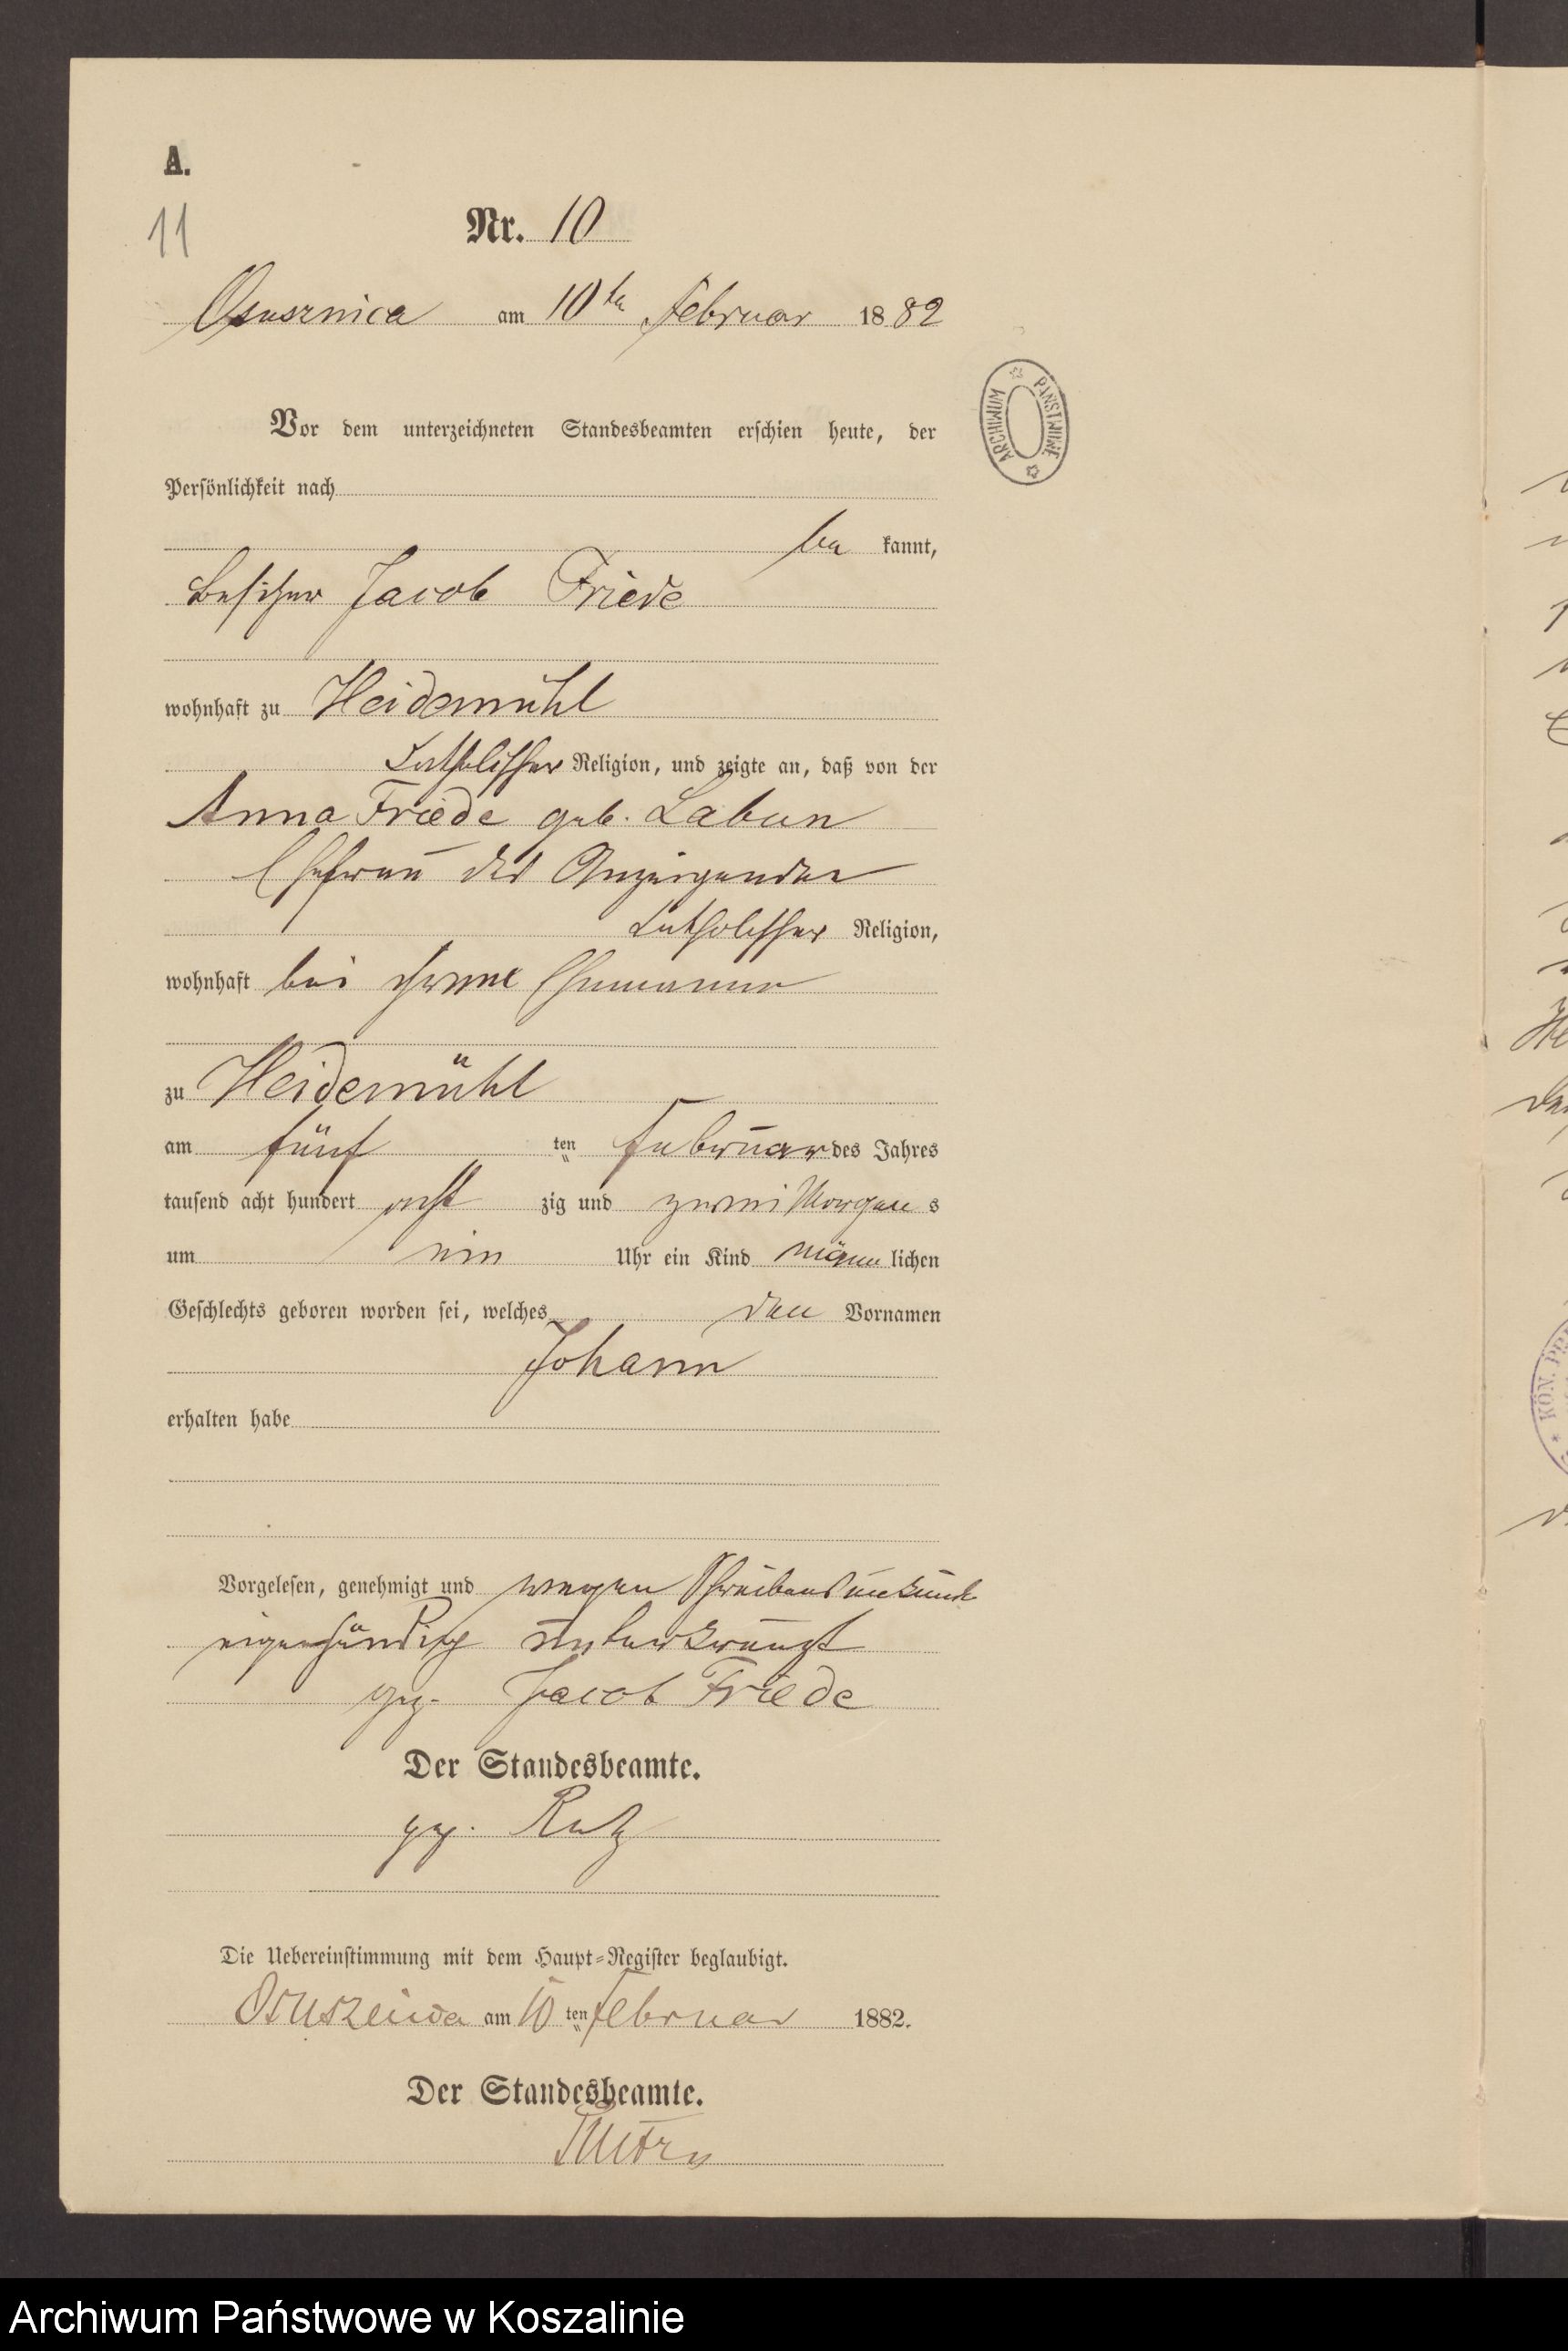 A.
11
Nr. 10
Osusznica am 10ten Februar 1882
ARCHIWUM PAŃSTWOWE
Vor dem unterzeichneten Standesbeamten erschien heute, der
Persönlichkeit nach
be kannt,
Besitzer Jacob Friede
wohnhaft zu Heidemühl
katholischer Religion, und zeigte an, daß von der
Anna Friede geb. Labun
Ehefrau des Anzeigenden
katholischer Religion,
wohnhaft bei ihrem Ehemanne
zu Heidemühl
am fünf ten Februar des Jahres
tausend acht hundert acht zig und zwei Morgens
um ein Uhr ein Kind männlichen
Geschlechts geboren worden sei, welches den Vornamen
Johann
erhalten habe
Vorgelesen, genehmigt und wegen Schreibensunkunde
eigenhändig unterkreuzt
gez. Jacob Friede
Der Standesbeamte.
gez.
Die Uebereinstimmung mit dem Haupt-Register beglaubigt.
am 10 ten Februar 1882.
Der Standesbeamte.
KÖN.
Archiwum Państwowe w Koszalinie